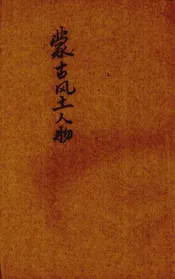 蒙古风土人物